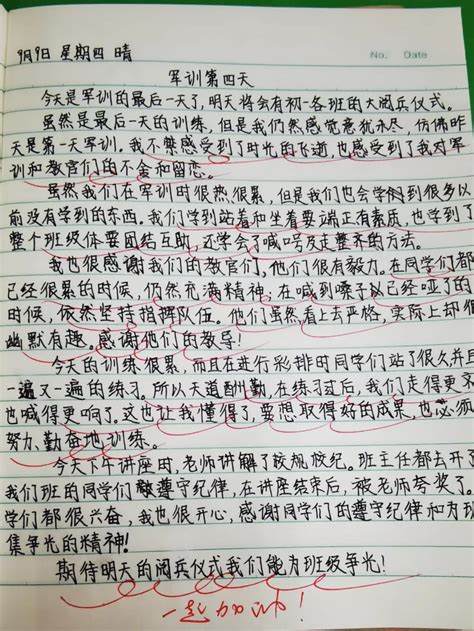 9月9日 星期四 晴
No. Date
军训第四天
今天是军训的最后一天了,明天将会有初一各班的大阅兵仪式。
虽然是最后一天的训练,但是我仍然感觉意犹未尽,仿佛昨
天是第一天军训。我不禁感受到了时光的飞逝,也感受到了我对军
训和教官们的不舍和留恋。
虽然我们在军训时很热很累,但是我们也会学到很多以
前没有学到的东西。我们学到站着和坐着要端正有素质,也学到了
整个班级体要团结互助,还学会了喊口号及走整齐的方法。
我也很感谢我们的教官们,他们很有毅力。在同学们都
已经很累的时候,仍然充满精神,在喊到嗓子以已经哑了的
时候,依然坚持指挥队伍。他们虽然看上去严格,实际上却很
幽默有趣。感谢他们的教导!
今天的训练很累,而且在进行彩排时同学们站了很久并且
一遍又一遍的练习。所以天道酬勤,在练习过后,我们走得更齐
也喊得更响了。这也让我懂得了,要想取得好的成果,也必须
努力、勤奋地训练。
今天下午讲座时,老师讲解了校规校纪。班主任都去开了
我们班的同学们遵守纪律,在讲座结束后,被老师夸奖了。
学们都很兴奋,我也很开心,感谢同学们的遵守纪律和为班
集争光的精神!
期待明天的阅兵仪式我们能为班级争光!
一起加油!